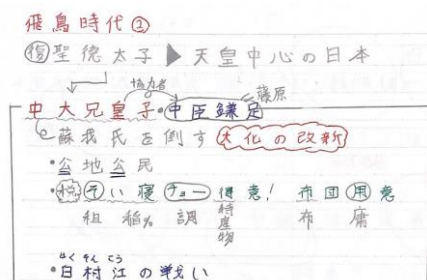 飛鳥時代②
復聖徳太子▶天皇中心の日本
協力者 藤原
中大兄皇子・中臣鎌足
蘇我氏を倒す 大化の改新
・公地公民
・税 そい寝 チョー 得意！ 布団 用意
租 稲% 調 特産物 布 庸
はくそんこう
・白村江の戦い